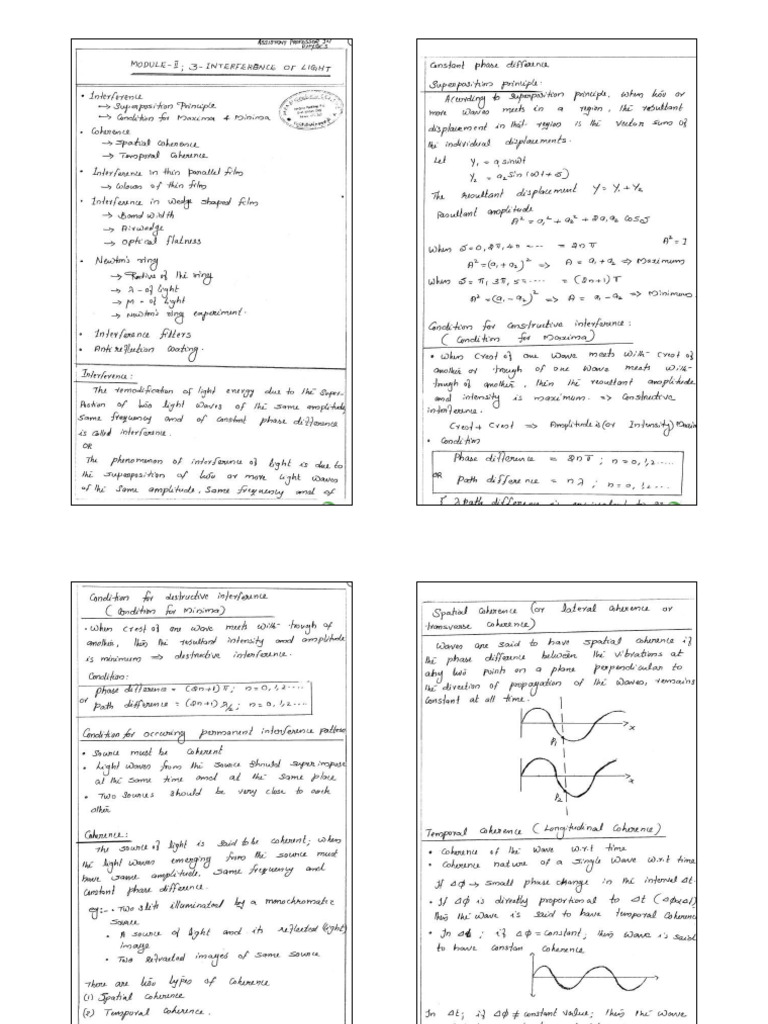 ASSISTANT PROFESSOR IN
PHYSICS
MODULE-II; 3-INTERFERENCE OF LIGHT
• Interference
→ Superposition Principle
→ Condition for Maxima & Minima
• Coherence
→ Spatial coherence
→ Temporal coherence
• Interference in thin parallel film
→ Colours of thin film
• Interference in wedge shaped film
→ Band width
→ Airwedge
→ Optical flatness
• Newton's ring
→ Radius of the ring
→ λ - of light
→ μ - of light
→ Newton's ring experiment.
• Interference filters
• Antireflection coating.
Interference:
The remodification of light energy due to the Super-
Position of two light waves of the same amplitude,
same frequency and of constant phase difference
is called interference.
OR
The phenomenon of interference of light is due to
the superposition of two or more light waves
of the same amplitude, same frequency and of
Constant phase difference
Superposition principle:
According to superposition principle, when two or
more waves meets in a region, the resultant
displacement in that region is the vector sum of
the individual displacements.
Let y₁ = a₁ sinωt
y₂ = a₂ sin(ωt+δ)
The resultant displacement y = y₁ + y₂
Resultant amplitude
A² = a₁² + a₂² + 2a₁a₂ cosδ
When δ = 0, 2π, 4π ---- = 2nπ A² = I
A² = (a₁+a₂)² => A = a₁+a₂ => Maximum
When δ = π, 3π, 5π---- = (2n+1)π
A² = (a₁-a₂)² => A = a₁-a₂ => Minimum
Condition for constructive interference:
(Condition for Maxima)
• When crest of one wave meets with crest of
another or trough of one wave meets with
trough of another, then the resultant amplitude
and intensity is maximum. => Constructive
interference.
Crest + Crest => Amplitude is (or Intensity) Maxim
• Condition
Phase difference = 2nπ ; n = 0,1,2.....
OR
Path difference = nλ ; n = 0,1,2.....
Path difference is equivalent to
Condition for destructive interference
(Condition for Minima)
• When crest of one wave meets with trough of
another, then the resultant intensity and amplitude
is minimum => destructive interference.
Condition:
Phase difference = (2n+1)π ; n = 0,1,2....
or Path difference = (2n+1)λ/2 ; n = 0,1,2....
Condition for occuring permanent interference pattern
• Source must be coherent
• Light waves from the source should superimpose
at the same time and at the same place
• Two sources should be very close to each
other
Coherence:
The source of light is said to be coherent; when
the light waves emerging from the source must
have same amplitude, same frequency and
constant phase difference.
eg:- • Two slits illuminated by a monochromatic
source
• A source of light and its reflected (light)
image
• Two refracted images of same source
There are two types of coherence
(1) Spatial coherence
(2) Temporal coherence.
Spatial coherence (or lateral coherence or
transverse coherence)
Waves are said to have spatial coherence if
the phase difference between the vibrations at
any two points on a plane perpendicular to
the direction of propagation of the waves, remains
constant at all time.
x
P₁
x
P₂
Temporal coherence (Longitudinal Coherence)
• Coherence of the wave w.r.t time
• Coherence nature of a single wave w.r.t time
If Δφ → small phase change in the interval Δt.
• If Δφ is directly proportional to Δt (Δφ∝Δt)
then the wave is said to have temporal coherence
• In Δt ; if Δφ = constant; then wave is said
to have constan coherence
In Δt; if Δφ ≠ constant value; then the wave